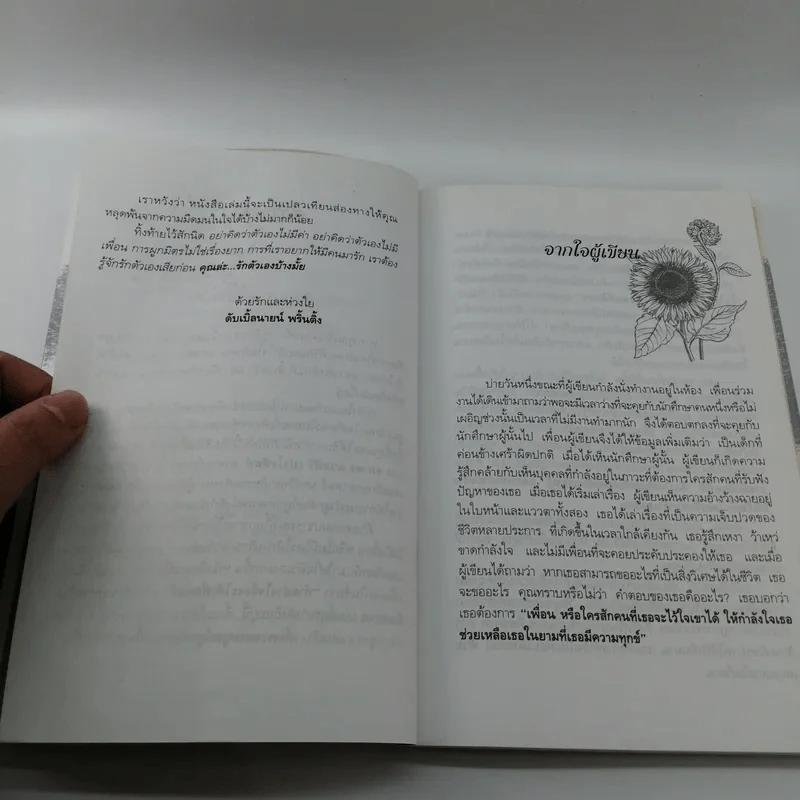 เราหวังว่า หนังสือเล่มนี้จะเป็นเปลวเทียนส่องทางให้คุณ
หลุดพ้นจากความมืดมนในใจได้บ้างไม่มากก็น้อย
ทิ้งท้ายไว้สักนิด อย่าคิดว่าตัวเองไม่มีค่า อย่าคิดว่าตัวเองไม่มี
เพื่อน การผูกมิตรไม่ใช่เรื่องยาก การที่เราอยากให้มีคนมารัก เราต้อง
รู้จักรักตัวเองเสียก่อน คุณล่ะ...รักตัวเองบ้างมั้ย
ด้วยรักและห่วงใย
ดับเบิ้ลนายน์ พริ้นติ้ง
จากใจผู้เขียน
บ่ายวันหนึ่งขณะที่ผู้เขียนกำลังนั่งทำงานอยู่ในห้อง เพื่อนร่วม
งานได้เดินเข้ามาถามว่าพอจะมีเวลาว่างที่จะคุยกับนักศึกษาคนหนึ่งหรือไม่
เผอิญช่วงนั้นเป็นเวลาที่ไม่มีงานทำมากนัก จึงได้ตอบตกลงที่จะคุยกับ
นักศึกษาผู้นั้นไป เพื่อนผู้เขียนจึงได้ให้ข้อมูลเพิ่มเติมว่า เป็นเด็กที่
ค่อนข้างเศร้าผิดปกติ เมื่อได้เห็นนักศึกษาผู้นั้น ผู้เขียนก็เกิดความ
รู้สึกคล้ายกับเห็นบุคคลที่กำลังอยู่ในภาวะที่ต้องการใครสักคนที่รับฟัง
ปัญหาของเธอ เมื่อเธอได้เริ่มเล่าเรื่อง ผู้เขียนเห็นความอ้างว้างฉายอยู่
ในใบหน้าและแววตาทั้งสอง เธอได้เล่าเรื่องที่เป็นความเจ็บปวดของ
ชีวิตหลายประการ ที่เกิดขึ้นในเวลาใกล้เคียงกัน เธอรู้สึกเหงา ว้าเหว่
ขาดกำลังใจ และไม่มีเพื่อนที่จะคอยประคับประคองให้เธอ และเมื่อ
ผู้เขียนได้ถามว่า หากเธอสามารถขออะไรที่เป็นสิ่งวิเศษได้ในชีวิต เธอ
จะขออะไร คุณทราบหรือไม่ว่า คำตอบของเธอคืออะไร? เธอบอกว่า
เธอต้องการ "เพื่อน หรือใครสักคนที่เธอจะไว้ใจเขาได้ ให้กำลังใจเธอ
ช่วยเหลือเธอในยามที่เธอมีความทุกข์"